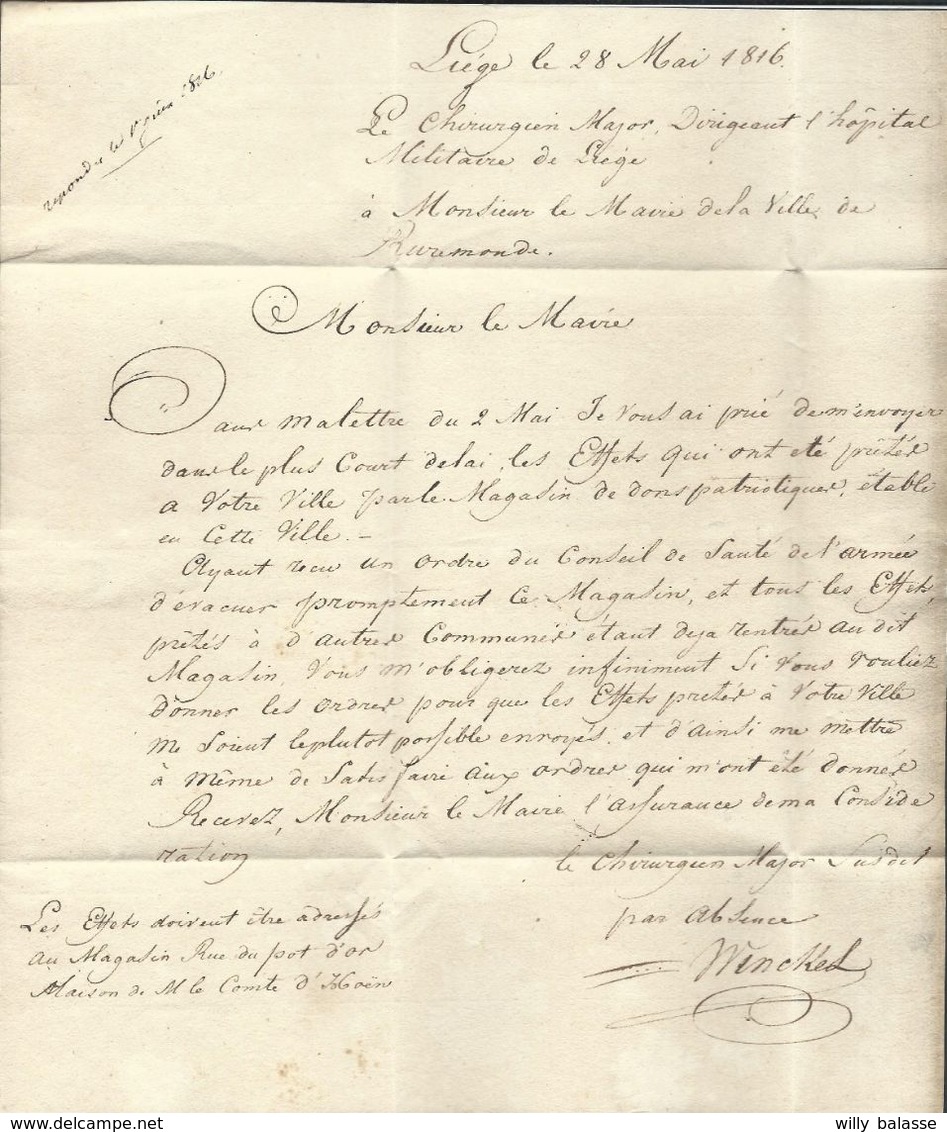 Liége le 28 Mai 1816.
repondu le 1r juin 1816
Le Chirurgien Major, Dirigeant l'hôpital
Militaire de Liége
à Monsieur le Maire de la Ville de
Ruremonde.
Monsieur le Maire
Dans ma lettre du 2 Mai Je vous ai prié de m'envoyer
dans le plus Court delai, les Effets qui ont été prêtés
a Votre Ville par le Magasin de dons patriotiques, établi
en Cette Ville. -
Ayant recu un ordre du Conseil de Santé de l'armée
d'évacuer promptement Ce Magasin, et tous les Effets,
prêtés à d'autres Communes étant deja rentrés au dit
Magasin, Vous m'obligerez infiniment Si Vous vouliez
donner les ordres pour que les Effets pretés à Votre Ville
me Soient le plutot possible envoyés, et d'ainsi me mettre
à même de Satisfaire aux ordres qui m'ont été donnés
Recevez, Monsieur le Maire l'assurance de ma Conside
ration
le Chirurgien Major Susdit
par Absence
Winckel
Les Effets doivent être adressés
au Magasin Rue du pot d'or
Maison de M le Comte d'Hoën
willy balasse